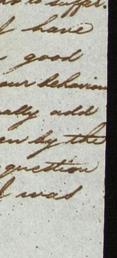 to suffer.
I have
good
our behaviour
ally add
en by the
question
I was